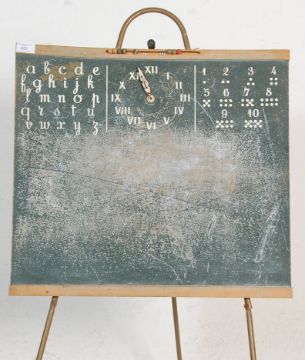 a b c d e
f g h i j k
l m n o p
q r s t u
v w x y z
XII
I
X II
IX III
VIII IIII
VII V
VI
1 2 3 4
5 6 7 8
9 10